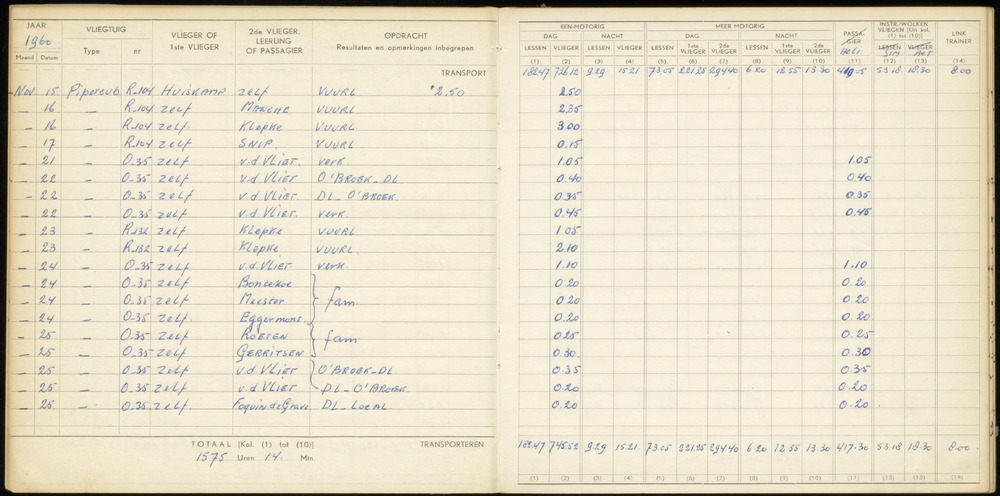 JAAR VLIEGTUIG VLIEGER OF 1ste VLIEGER 2de VLIEGER, LEERLING OF PASSAGIER OPDRACHT Resultaten en opmerkingen inbegrepen
1960
Maand Datum Type nr
TRANSPORT
Nov. 15 Pipercub R.104 HUISKAMP zelf VUURL 2.50
16 R.104 zelf MANCHE VUURL
16 R.104 zelf Klepke VUURL
17 R.104 zelf SNIP. VUURL
21 O.35 zelf v.d VLIET. verk.
22 O.35 zelf v.d VLIET O'BROEK_DL
22 O.35 zelf v.d VLIET. DL_O'BROEK
22 O.35 zelf v.d VLIET. verk.
23 R.132 zelf Klepke VUURL
23 R.132 zelf Klepke VUURL
24 O.35 zelf v.d.VLIET verk.
24 O.35 zelf Bontekoe
24 O.35 zelf Meester fam
24 O.35 zelf. Eggermont.
25 O.35 zelf ROETEN fam
25 O.35 zelf GERRITSEN
25 O.35 zelf v.d VLIET O'BROEK_DL.
25 O.35 zelf v.d VLIET DL_O'BROEK
25 O.35 zelf. Foquin de Grave DL_LOCAL
TOTAAL [Kol. (1) tot (10)] TRANSPORTEREN
1575 Uren 14. Min.
EEN-MOTORIG MEER MOTORIG PASSA-GIER INSTR./WOLKEN VLIEGEN [Un kol. (1) tot (10)] LINK TRAINER
DAG NACHT DAG NACHT HELI
LESSEN VLIEGER LESSEN VLIEGER LESSEN 1ste VLIEGER 2de VLIEGER LESSEN 1ste VLIEGER 2de VLIEGER LESSEN VLIEGER
SIM. Act.
(1) (2) (3) (4) (5) (6) (7) (8) (9) (10) (11) (12) (13) (14)
182.47 726.12 9.29 15.21 73.05 221.25 294.40 6.20 12.55 13.30 53.18 18.30 8.00
2.50
2.35
3.00
0.15
1.05 1.05
0.40 0.40
0.35 0.35
0.45 0.45
1.05
2.10
1.10 1.10
0.20 0.20
0.20 0.20
0.20 0.20
0.25 0.25
0.30. 0.30
0.35 0.35
0.20 0.20
0.20 0.20
182.47 745.52 9.29 15.21 73.05 221.25 294.40 6.20 12.55 13.30 417.30 53.18 18.30 8.00.
(1) (2) (3) (4) (5) (6) (7) (8) (9) (10) (11) (12) (13) (14)